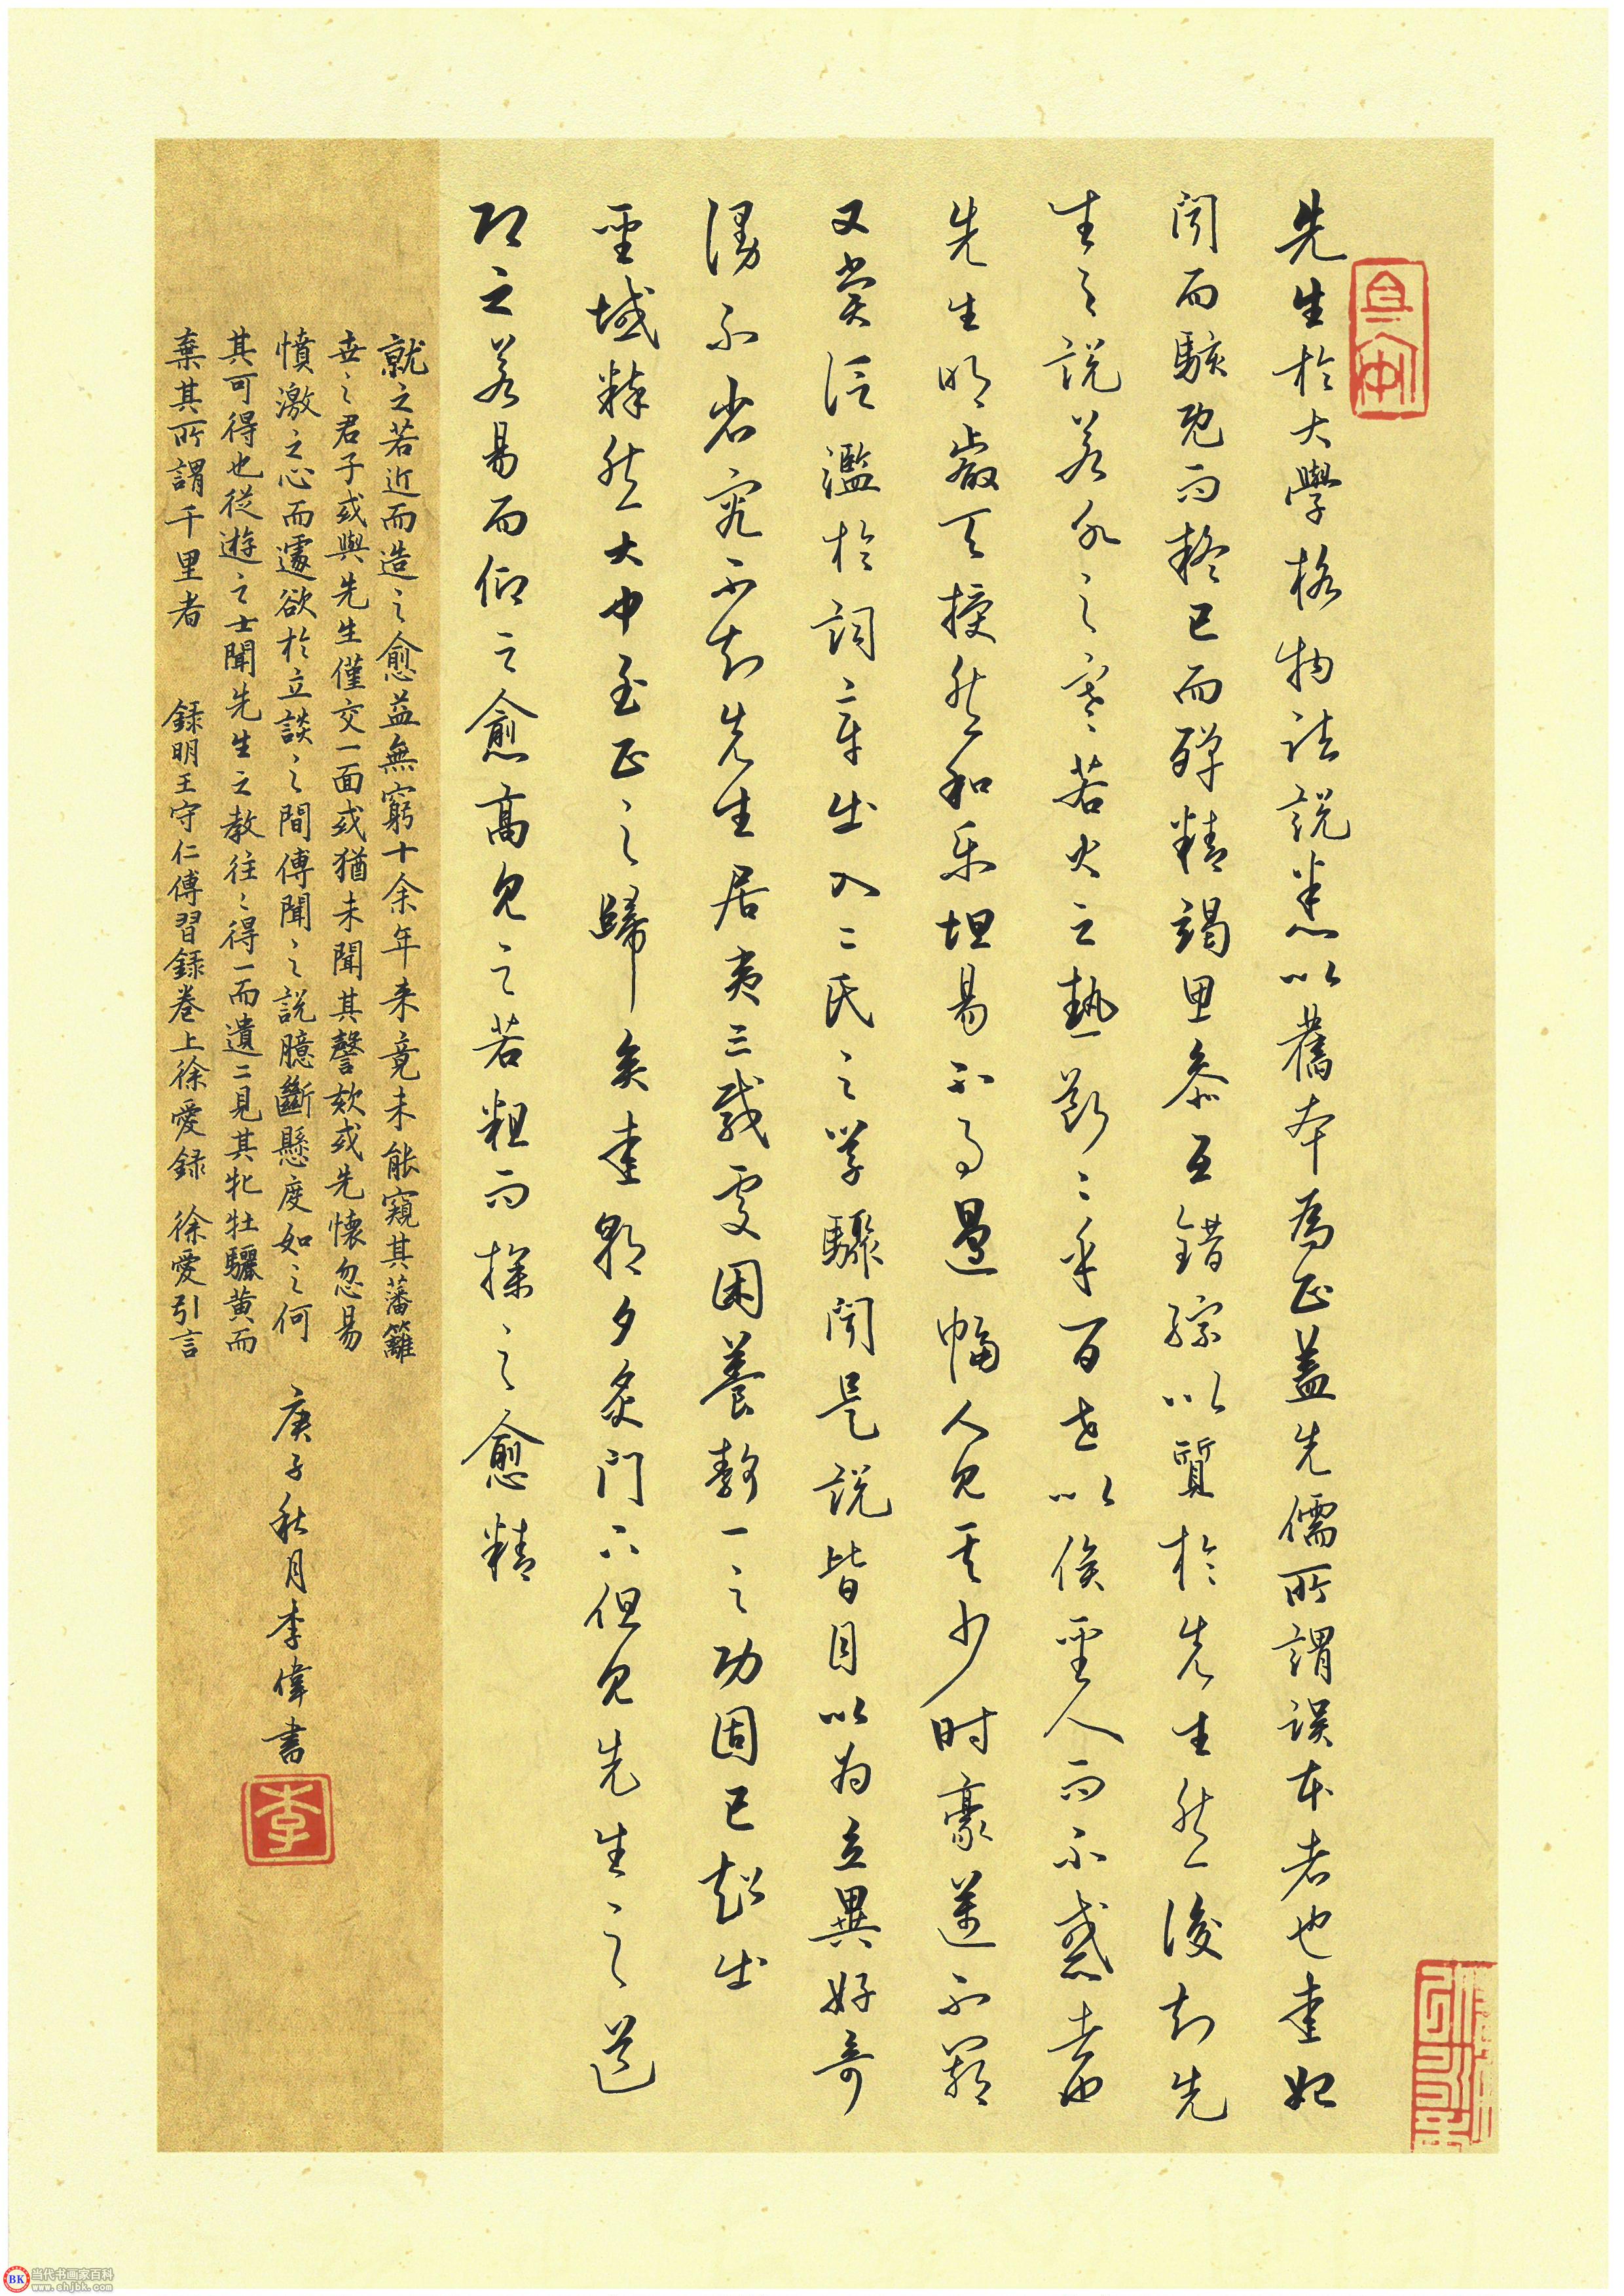 先生於大學格物諸說悉以舊本為正蓋先儒所謂誤本者也愛始
聞而駭既而疑已而殫精竭思參互錯綜以質於先生然後知先
生之說若水之寒若火之熱斷斷乎百世以俟聖人而不惑者也
先生明睿天授然和乐坦易不事邊幅人見其少时豪邁不羈
又嘗泛濫於詞章出入二氏之学驟聞是説皆目以为立異好奇
漫不省究不知先生居夷三載處困養静精一之功固已超出
聖域粹然大中至正之歸矣愛朝夕炙門下但見先生之道
即之若易而仰之愈高見之若粗而探之愈精
就之若近而造之愈益無窮十余年来竟未能窺其藩籬
世之君子或與先生僅交一面或猶未聞其謦欬或先懷忽易
憤激之心而遽欲於立談之間傳聞之説臆斷懸度如之何
其可得也從遊之士聞先生之教往々得一而遺二見其牝牡驪黄而
棄其所謂千里者 録明王守仁傳習録卷上徐愛録 徐愛引言
庚子秋月李偉書
李
当代书画家百科
www.shjbk.com
BK